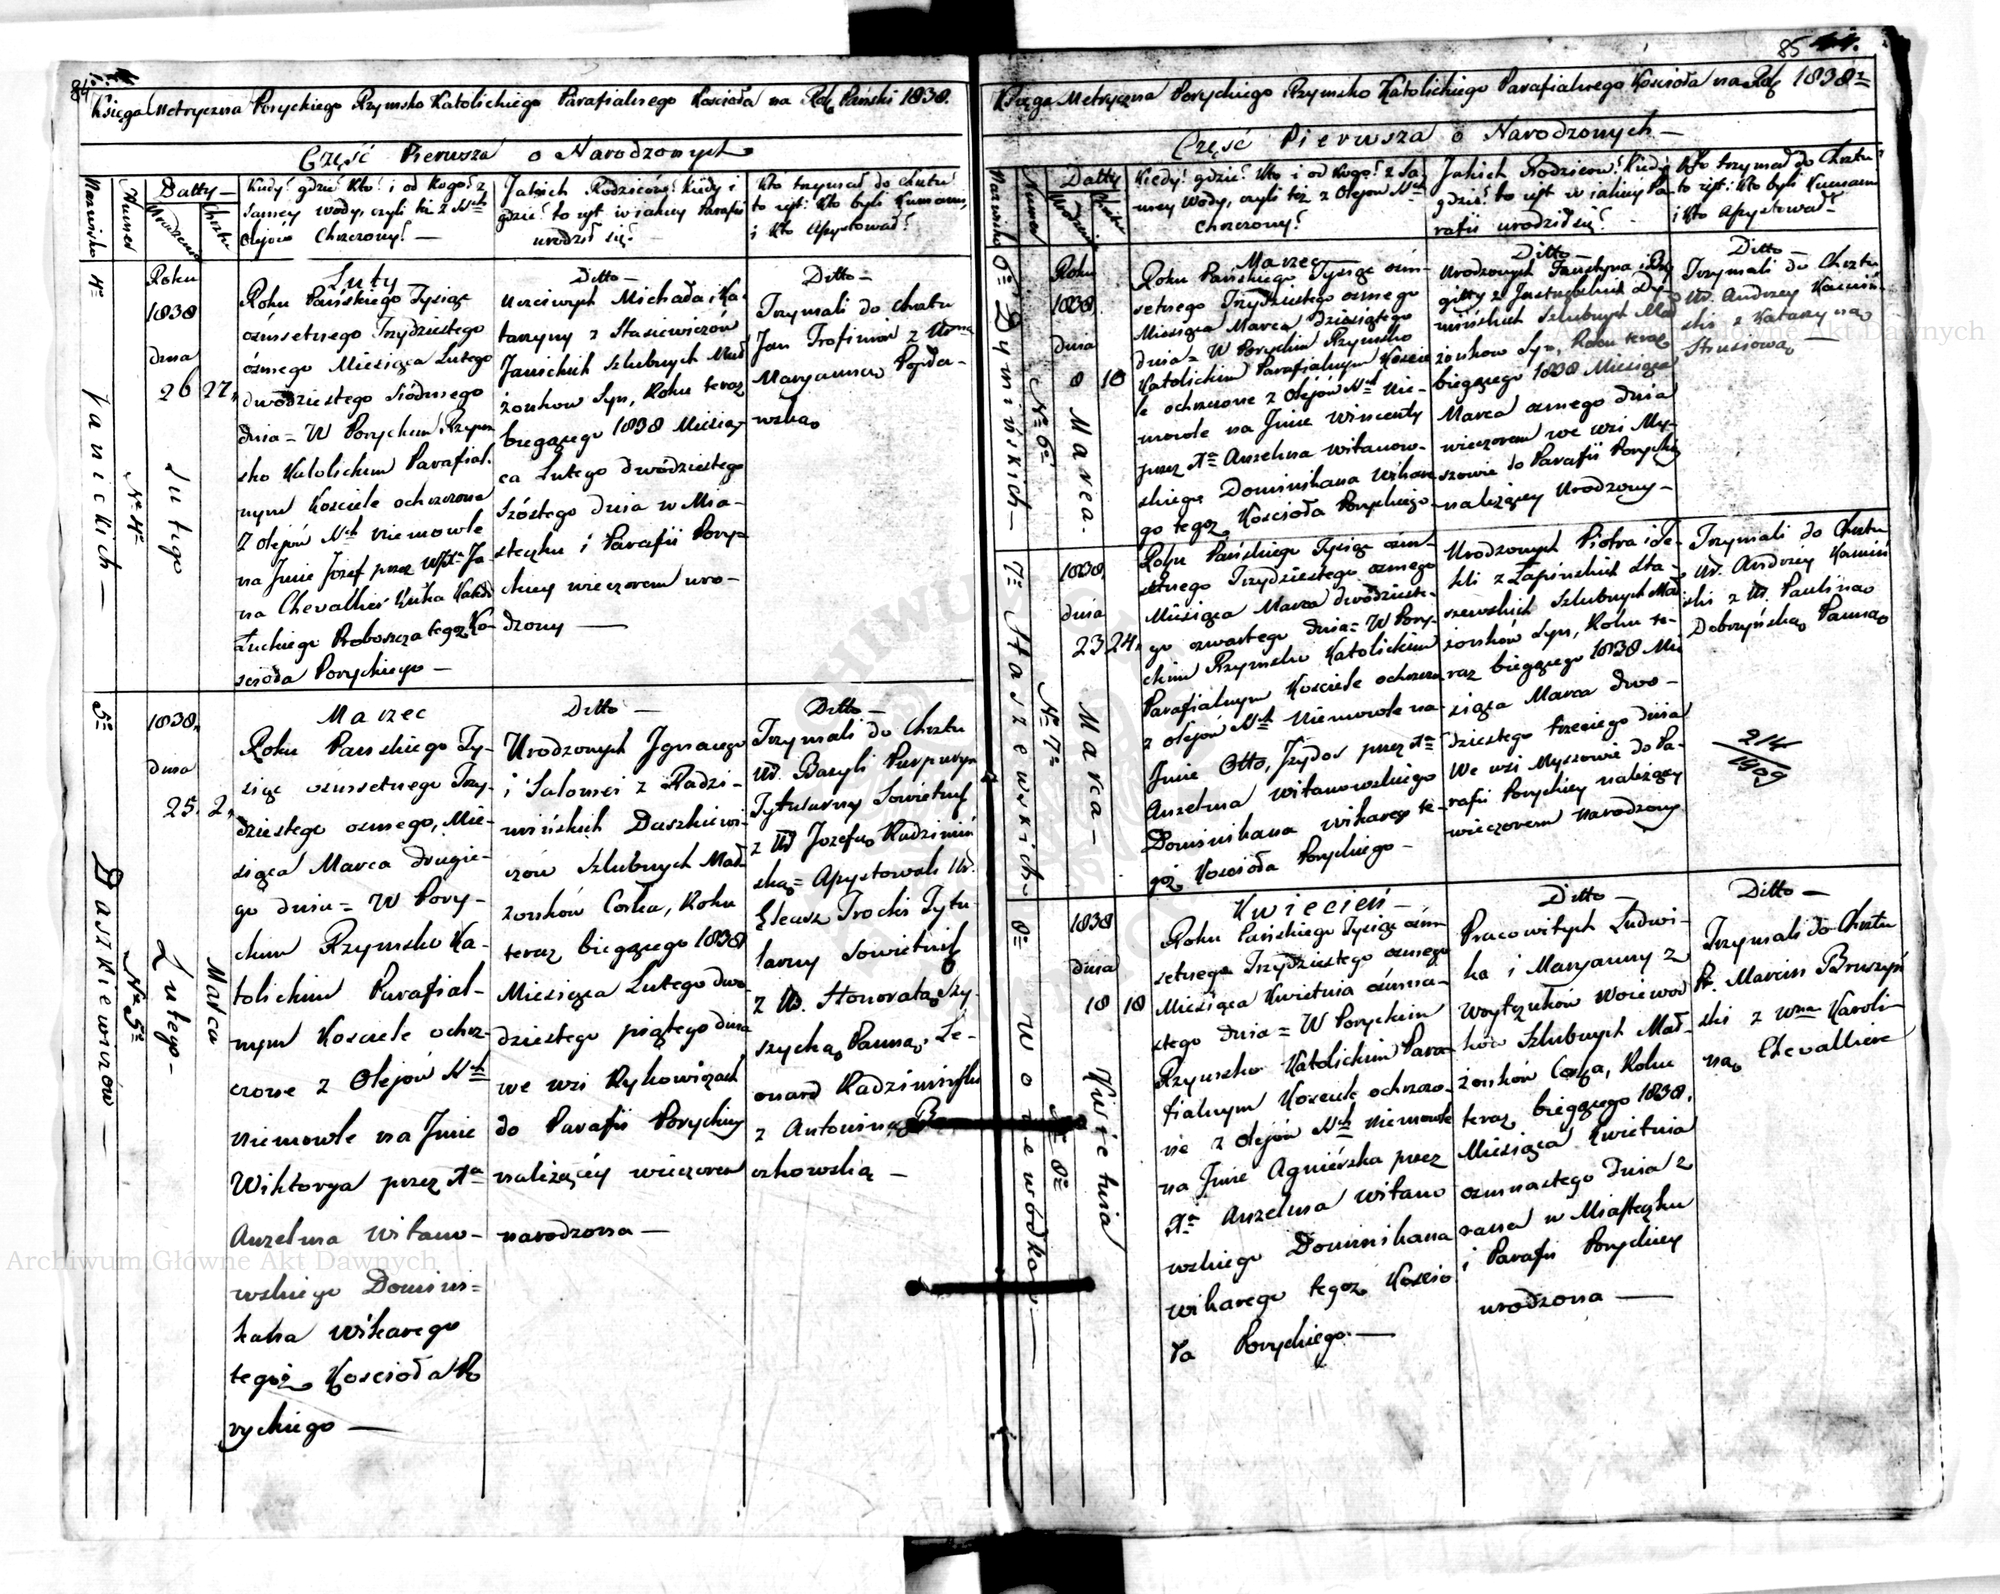 84
Księga Metryczna Poryckiego Rzymsko Katolickiego Parafialnego Kościoła na Rok Pański 1838.
Część Pierwsza o Narodzonych
Nazwisko
Numer
Datty
Urodzenia
Chrztu
Kiedy? gdzie? Kto? i od Kogo? z
samey wody, czyli też z Stch
Olejów Chrzczony? —
Jakich Rodziców? Kiedy i
gdzie? to iest w iakiey Parafii
urodził się? —
Kto trzymał do Chrztu?
to iest: Kto byli Kumami,
i Kto Assystował?
4o
Janickich —
No 4o
Roku
1838
dnia
26 27,
Lutego
Luty
Roku Pańskiego Tysiąc
ośmsetnego Trzydziestego
ósmego Miesiąca Lutego
dwódziestego Siódmego
dnia = W Poryckim Rzym
sko Katolickim Parafial.
nym Kosciele ochrzczone
z Olejów Stch niemowle
na Jmie Jozef przez
na Chevallier
Łuckiego Proboszcza tegoż Ko-
scioła Poryckiego —
Ditto —
Uczciwych Michała i Ka-
tarzyny z Stasiewiczów
Janickich Szlubnych Mał
żonkow Syn, Roku teraz
biegącego 1838 Miesią-
ca Lutego dwódziestego
Szóstego dnia w Mia-
steczku i Parafii Pory-
ckiey wieczorem uro-
dzony —
Ditto —
Trzymali do Chrztu
Jan Trofimow z
Maryanną Pojda-
wską
5o
Daszkiewiczów —
No 5o
1838,
dnia
25. 2,
Lutego —
Marca
Marzec
Roku Pańskiego Ty-
siąc ośmsetnego Trzy-
dziestego osmego, Mie-
siąca Marca drugie-
go dnia = W Pory-
ckim Rzymsko Ka-
tolickim Parafial-
nym Kosciele ochrz-
czone z Olejów Stch
niemowle na Jmie
Wiktorya przez Xa
Anzelma Witano-
wskiego Domini-
kana Wikarego
tegoż Kościoła Po
ryckiego —
Ditto —
Urodzonych Jgnacego
i Salomei z Radzi-
mińskich Daszkiewi-
czów Szlubnych Mał
żonków Corka, Roku
teraz biegącego 1838
Miesiąca Lutego dwo-
dziestego piątego dnia
we wsi Rykowiczach
do Parafii Poryckiey
należącéy wieczorem
narodzona —
Ditto —
Trzymali do Chrztu
Ur. Bazyli Purpuryn
Tytularny Sowietnik
z Ur Jozefą Radzimiń
ską = Assystowali Ur.
Eleasz Trocki Tytu
larny Sowietnik
z Ur. Honoratą Szy-
szycką Panną, Le-
onard Radzimiński
z Antoniną
czkowską —
85
Księga Metryczna Poryckiego Rzymsko Katolickiego Parafialnego Kościoła na Rok 1838
Część Pierwsza o Narodzonych —
Nazwisko
Numer
Datty
Urodzenia
Chrztu
Kiedy? gdzie? Kto i od Kogo? z Sa-
mey Wody, czyli też z Olejow Stch
Chrzczony?
Jakich Rodzicow? Kiedy
gdzie? to iest w iakiey Pa-
rafii urodził się?
Kto trzymał do Chrztu?
to iest: Kto byli Kumami
i Kto Assystował
6o Dyminskich —
No 6o
Roku
1838.
dnia
8 10
Marca.
Marzec
Roku Pańskiego Tysiąc ośm-
setnego Trzydziestego osmego
Miesiąca Marca dziesiątego
dnia = W Poryckim Rzymsko
Katolickim Parafialnym Kościo
le ochrzczone z Olejów Stch nie-
mowle na Jmie Wincenty
przez Xa Anzelma Witanow-
skiego Dominikana Wikare
go tegoż Kościoła Poryckiego —
Ditto —
Urodzonych Faustyna i Bry
gitty z Dy-
mińskich Szlubnych Mał
żonkow Syn, Roku teraz
biegącego 1838 Miesiąca
Marca osmego dnia
wieczorem we wsi My-
szowie do Parafii Poryckiey
należącey Urodzony —
Ditto —
Trzymali do Chrztu
Ur. Andrzey Kamiń-
ski z Katarzyną
Strusiową —
7o Staszewskich —
No 7o
1838,
dnia
23 24,
Marca —
Roku Pańskiego Tysiąc osm-
setnego Trzydziestego osmego
Miesiąca Marca dwódzieste-
go czwartego dnia = W Pory-
ckim Rzymsko Katolickim
Parafialnym Kosciele ochrzczo
z Olejów Stch niemowle na
Jmie Otto, Jzydor przez Xa
Anzelma Witanowskiego
Dominikana Wikarego te-
goż Kościoła Poryckiego —
Urodzonych Piotra i Te-
kli z Łapińskich Sta-
szewskich Szlubnych Mał
żonków Syn, Roku te-
raz biegącego 1838 Mie
siąca Marca dwo-
dziestego trzeciego dnia
We wsi Myszowie do Pa-
rafii Poryckiey należącey
wieczorem narodzony
Trzymali do Chrztu
Ur. Andrzey Kamiń
ski z Ur. Pauliną
Dobrzyńską Panną
214
1909
8o Woiewódkow —
No 8o
1838
dnia
18 18
Kwietnia
Kwiecień —
Roku Pańskiego Tysiąc ośm
setnego Trzydziestego osmego
Miesiąca Kwietnia ośmna-
stego dnia = W Poryckim
Rzymsko Katolickim Para
fialnym Kosciele ochrzczo-
ne z Olejów Stch niemowle
na Jmie Agnieszka przez
Xa Anzelma Witano
wskiego Dominikana
Wikarego tegoż Koscio
ła Poryckiego. —
Ditto —
Pracowitych Ludwi-
ka i Maryanny z
Woytyuków Woiewod
ków Szlubnych Mał-
żonków Corka, Roku
teraz biegącego 1838.
Miesiąca Kwietnia
osmnastego dnia z
rana w Miasteczku
i Parafii Poryckiey
urodzona —
Ditto —
Trzymali do Chrztu
P. Marcin Bruszyń
ski z Wna Karoli-
ną Chevalliere
Archiwum Główne Akt Dawnych
Archiwum Główne Akt Dawnych